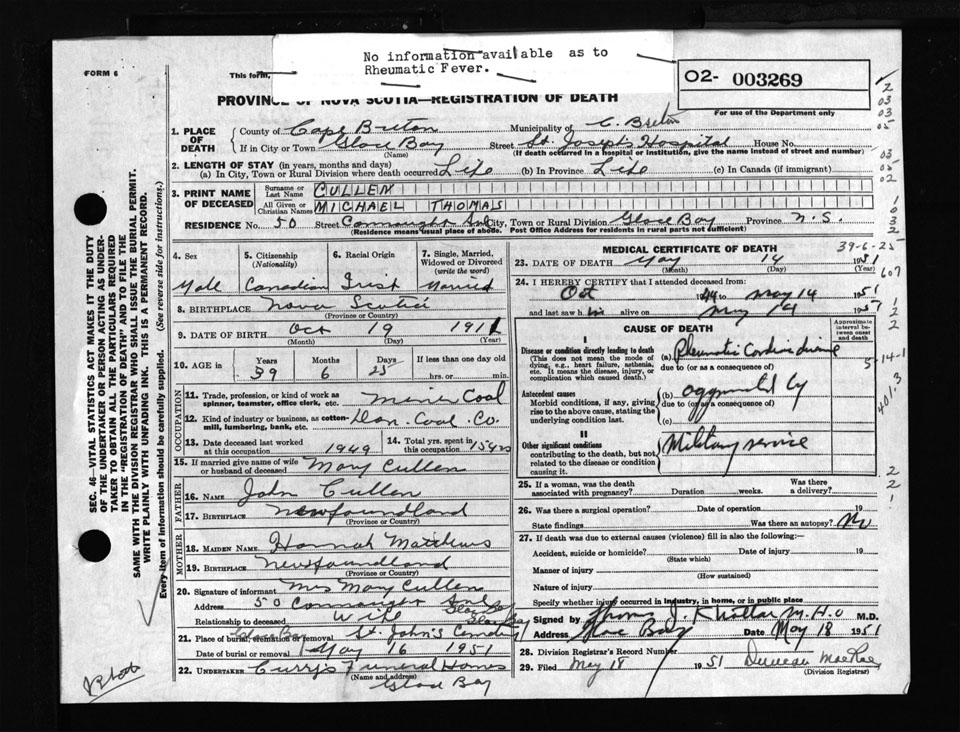 No information available as to
Rheumatic Fever.
FORM 6
This form,
O2- 003269
PROVINCE OF NOVA SCOTIA—REGISTRATION OF DEATH
For use of the Department only
1. PLACE OF DEATH
County of Cape Breton Municipality of C. Breton
If in City or Town Glace Bay Street St. Joseph's Hospital House No.
(Name) (If death occurred in a hospital or institution, give the name instead of street and number)
2. LENGTH OF STAY (in years, months and days)
(a) In City, Town or Rural Division where death occurred Life (b) In Province Life (c) In Canada (if immigrant)
3. PRINT NAME OF DECEASED
Surname or Last Name CULLEN
All Given or Christian Names MICHAEL THOMAS
RESIDENCE No. 50 Street Connaught Ave City, Town or Rural Division Glace Bay Province N.S.
(Residence means usual place of abode. Post Office Address for residents in rural parts not sufficient)
4. Sex
Male
5. Citizenship
(Nationality)
Canadian
6. Racial Origin
Irish
7. Single, Married, Widowed or Divorced
(write the word)
Married
8. BIRTHPLACE Nova Scotia
(Province or Country)
9. DATE OF BIRTH Oct 19 1911
(Month) (Day) (Year)
10. AGE in
Years 39
Months 6
Days 25
If less than one day old
hrs. or min.
OCCUPATION
11. Trade, profession, or kind of work as spinner, teamster, office clerk, etc. Miner Coal
12. Kind of industry or business, as cotton-mill, lumbering, bank, etc. Dom. Coal Co.
13. Date deceased last worked at this occupation 1949
14. Total yrs. spent in this occupation 15 yrs
15. If married give name of wife or husband of deceased Mary Cullen
FATHER
16. NAME John Cullen
17. BIRTHPLACE Newfoundland
(Province or Country)
MOTHER
18. MAIDEN NAME Hannah Matthews
19. BIRTHPLACE Newfoundland
(Province or Country)
20. Signature of informant Mrs Mary Cullen
Address 50 Connaught Ave Glace Bay
Relationship to deceased Wife Glace Bay
21. Place of burial, cremation or removal Glace Bay St. John's Cemetery
Date of burial or removal May 16 1951
22. UNDERTAKER Curry's Funeral Homes
(Name and address)
Glace Bay
MEDICAL CERTIFICATE OF DEATH
39-6-25
23. DATE OF DEATH May 14 1951
(Month) (Day) (Year)
24. I HEREBY CERTIFY that I attended deceased from:
Oct 1944 to May 14 1951
and last saw him alive on May 14 1951
CAUSE OF DEATH
Approximate interval between onset and death
I
Disease or condition directly leading to death
(This does not mean the mode of dying, e.g., heart failure, asthenia, etc. It means the disease, injury, or complication which caused death.)
(a) Rheumatic Cardiac disease
due to (or as a consequence of)
Antecedent causes
Morbid conditions, if any, giving rise to the above cause, stating the underlying condition last.
(b) aggravated by
due to (or as a consequence of)
(c)
II
Other significant conditions
contributing to the death, but not related to the disease or condition causing it.
Military service
25. If a woman, was the death associated with pregnancy? Duration weeks. Was there a delivery?
26. Was there a surgical operation? Date of operation 19
State findings Was there an autopsy? No
27. If death was due to external causes (violence) fill in also the following:—
Accident, suicide or homicide? Date of injury 19
(State which)
Manner of injury
(How sustained)
Nature of injury
Specify whether injury occurred in industry, in home, or in public place
Signed by Thomas J. M.H.O M.D.
Address Glace Bay Date May 18 1951
28. Division Registrar's Record Number
29. Filed May 18 1951 Duncan MacRae
(Division Registrar)
SEC. 46—VITAL STATISTICS ACT MAKES IT THE DUTY
OF THE UNDERTAKER OR PERSON ACTING AS UNDER-
TAKER TO OBTAIN ALL THE PARTICULARS REQUIRED
IN THE "REGISTRATION OF DEATH" AND TO FILE THE
SAME WITH THE DIVISION REGISTRAR WHO SHALL ISSUE THE BURIAL PERMIT.
WRITE PLAINLY WITH UNFADING INK. THIS IS A PERMANENT RECORD.
Every item of information should be carefully supplied. (See reverse side for instructions.)
2
03
03
05
03
05
02
1
0
3
2
607
1
2
2
5-14-1
401.3
2
2
1